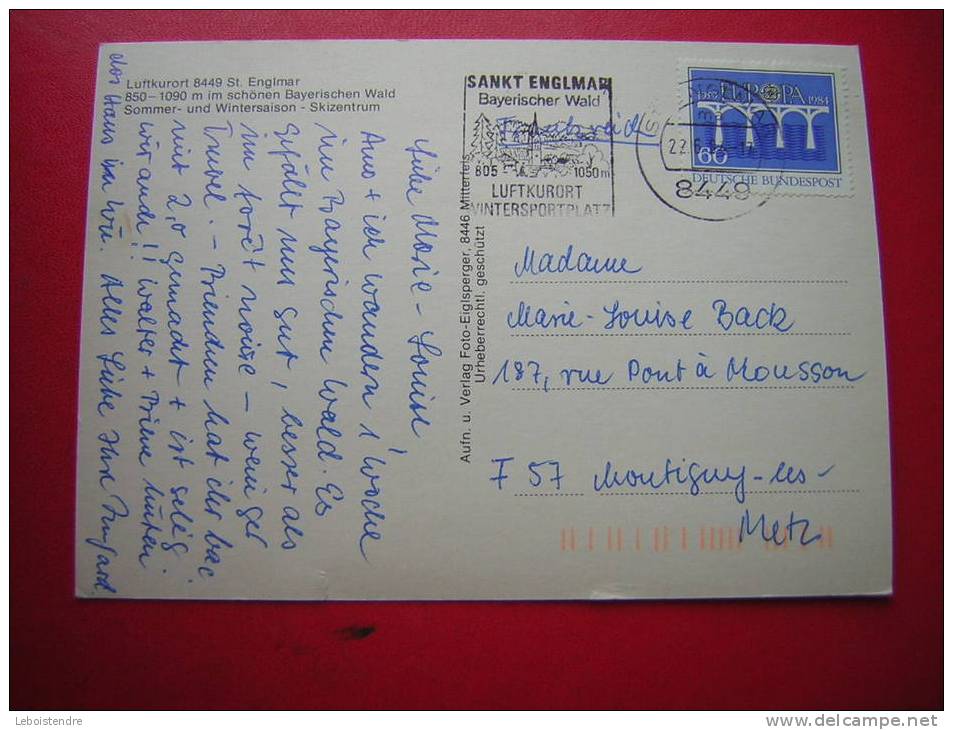 Luftkurort 8449 St. Englmar
850–1090 m im schönen Bayerischen Wald
Sommer- und Wintersaison - Skizentrum
Liebe Marie-Louise,
Arno + ich wandern 1 Woche
im Bayerischen Wald. Es
gefällt uns gut, besser als
im forêt noire – weniger
Trubel. –            hat ihr bac
mit 2,0 gemacht + ist selig
wir auch!! Walter +            hüten
das Haus in Wü. Alles Liebe Ihre Irmgard.
Aufn. u. Verlag Foto-Eiglsperger, 8446 Mitterfels
Urheberrechtl. geschützt
SANKT ENGLMAR
Bayerischer Wald
805 - 1050m
LUFTKURORT
WINTERSPORTPLATZ
Frankreich
22.6.
8449
EUROPA
1984
60
DEUTSCHE BUNDESPOST
Madame
Marie-Louise Back
187, rue Pont à Mousson
F 57 Montigny-les-
Metz
Leboistendre
delcampe.net